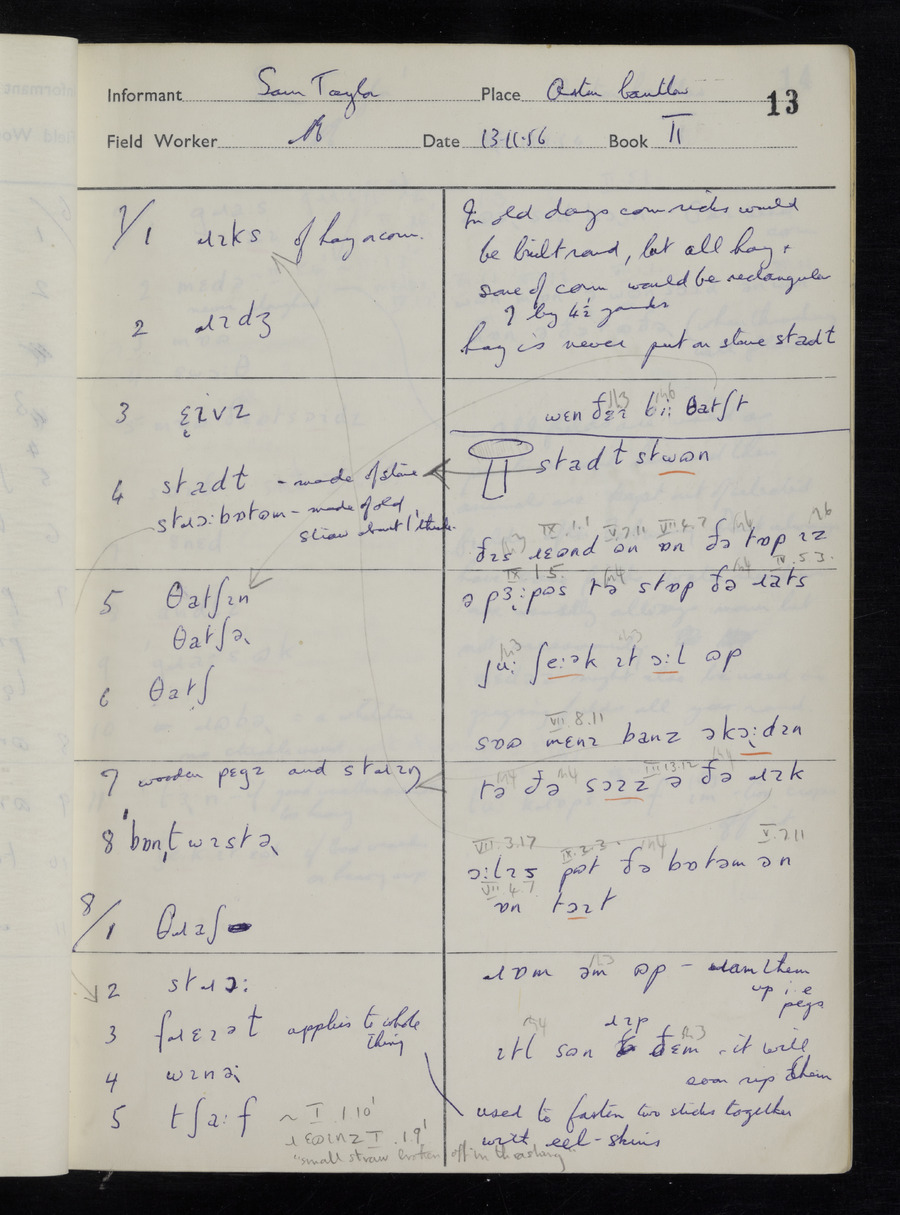 Informant Sam Taylor Place Aston Cantlow 13
Field Worker Date 13·11·56 Book II
7/1 ɹɪks of hay or corn.
2 ɹɪdʒ
3 ɛɪvz
4 stadt - made of stone
stɹɔ:bɒtəm - made of old
straw about 1' thick.
5 θatʃɪn
θatʃə
6 θatʃ
7 wooden pegz and stɹɪŋ
8 bɒnt wɪstə
8/1 θɹaʃ
2 stɹɔ:
3 fɹɛɪət applies to whole
thing
4 wɪnə
5 tʃa:f ~ I.1 10'
I.1 9'
"small straw broken off in thrashing"
In old days corn ricks would
be built round, but all hay +
some of corn would be rectangular
7 by 4½ yards
hay is never put on stone stadt
wen ðɛɪ bi: θatʃt
stadt stwʊn
ðɪs ɹɛʊnd ən ɒn ðə tɒp ɪz
IX.1.1 V.7.11
ə pɜ:pəs tə stɒp ðə ɹats
IX 1 5. IV.5 3.
ju: ʃe:ək ɪt ɔ:l ʊp
VII.8.11
sʊʊ mɛnɪ banz əkɔ:dɪn
tə ðə sɔɪz ə ðə ɹɪk
III.13.12
VII.3.17 IX.3.3 V.7.11
ɔ:lɪz pʊt ðə bɒtəm ən
VII 4 7
ɒn tɔɪt
ɹam əm ʊp - ram them
up i.e
pegs
ɹɪp
ɪtl sʊn ðem - it will
soon rip them
used to fasten two sticks together
with eel-skins